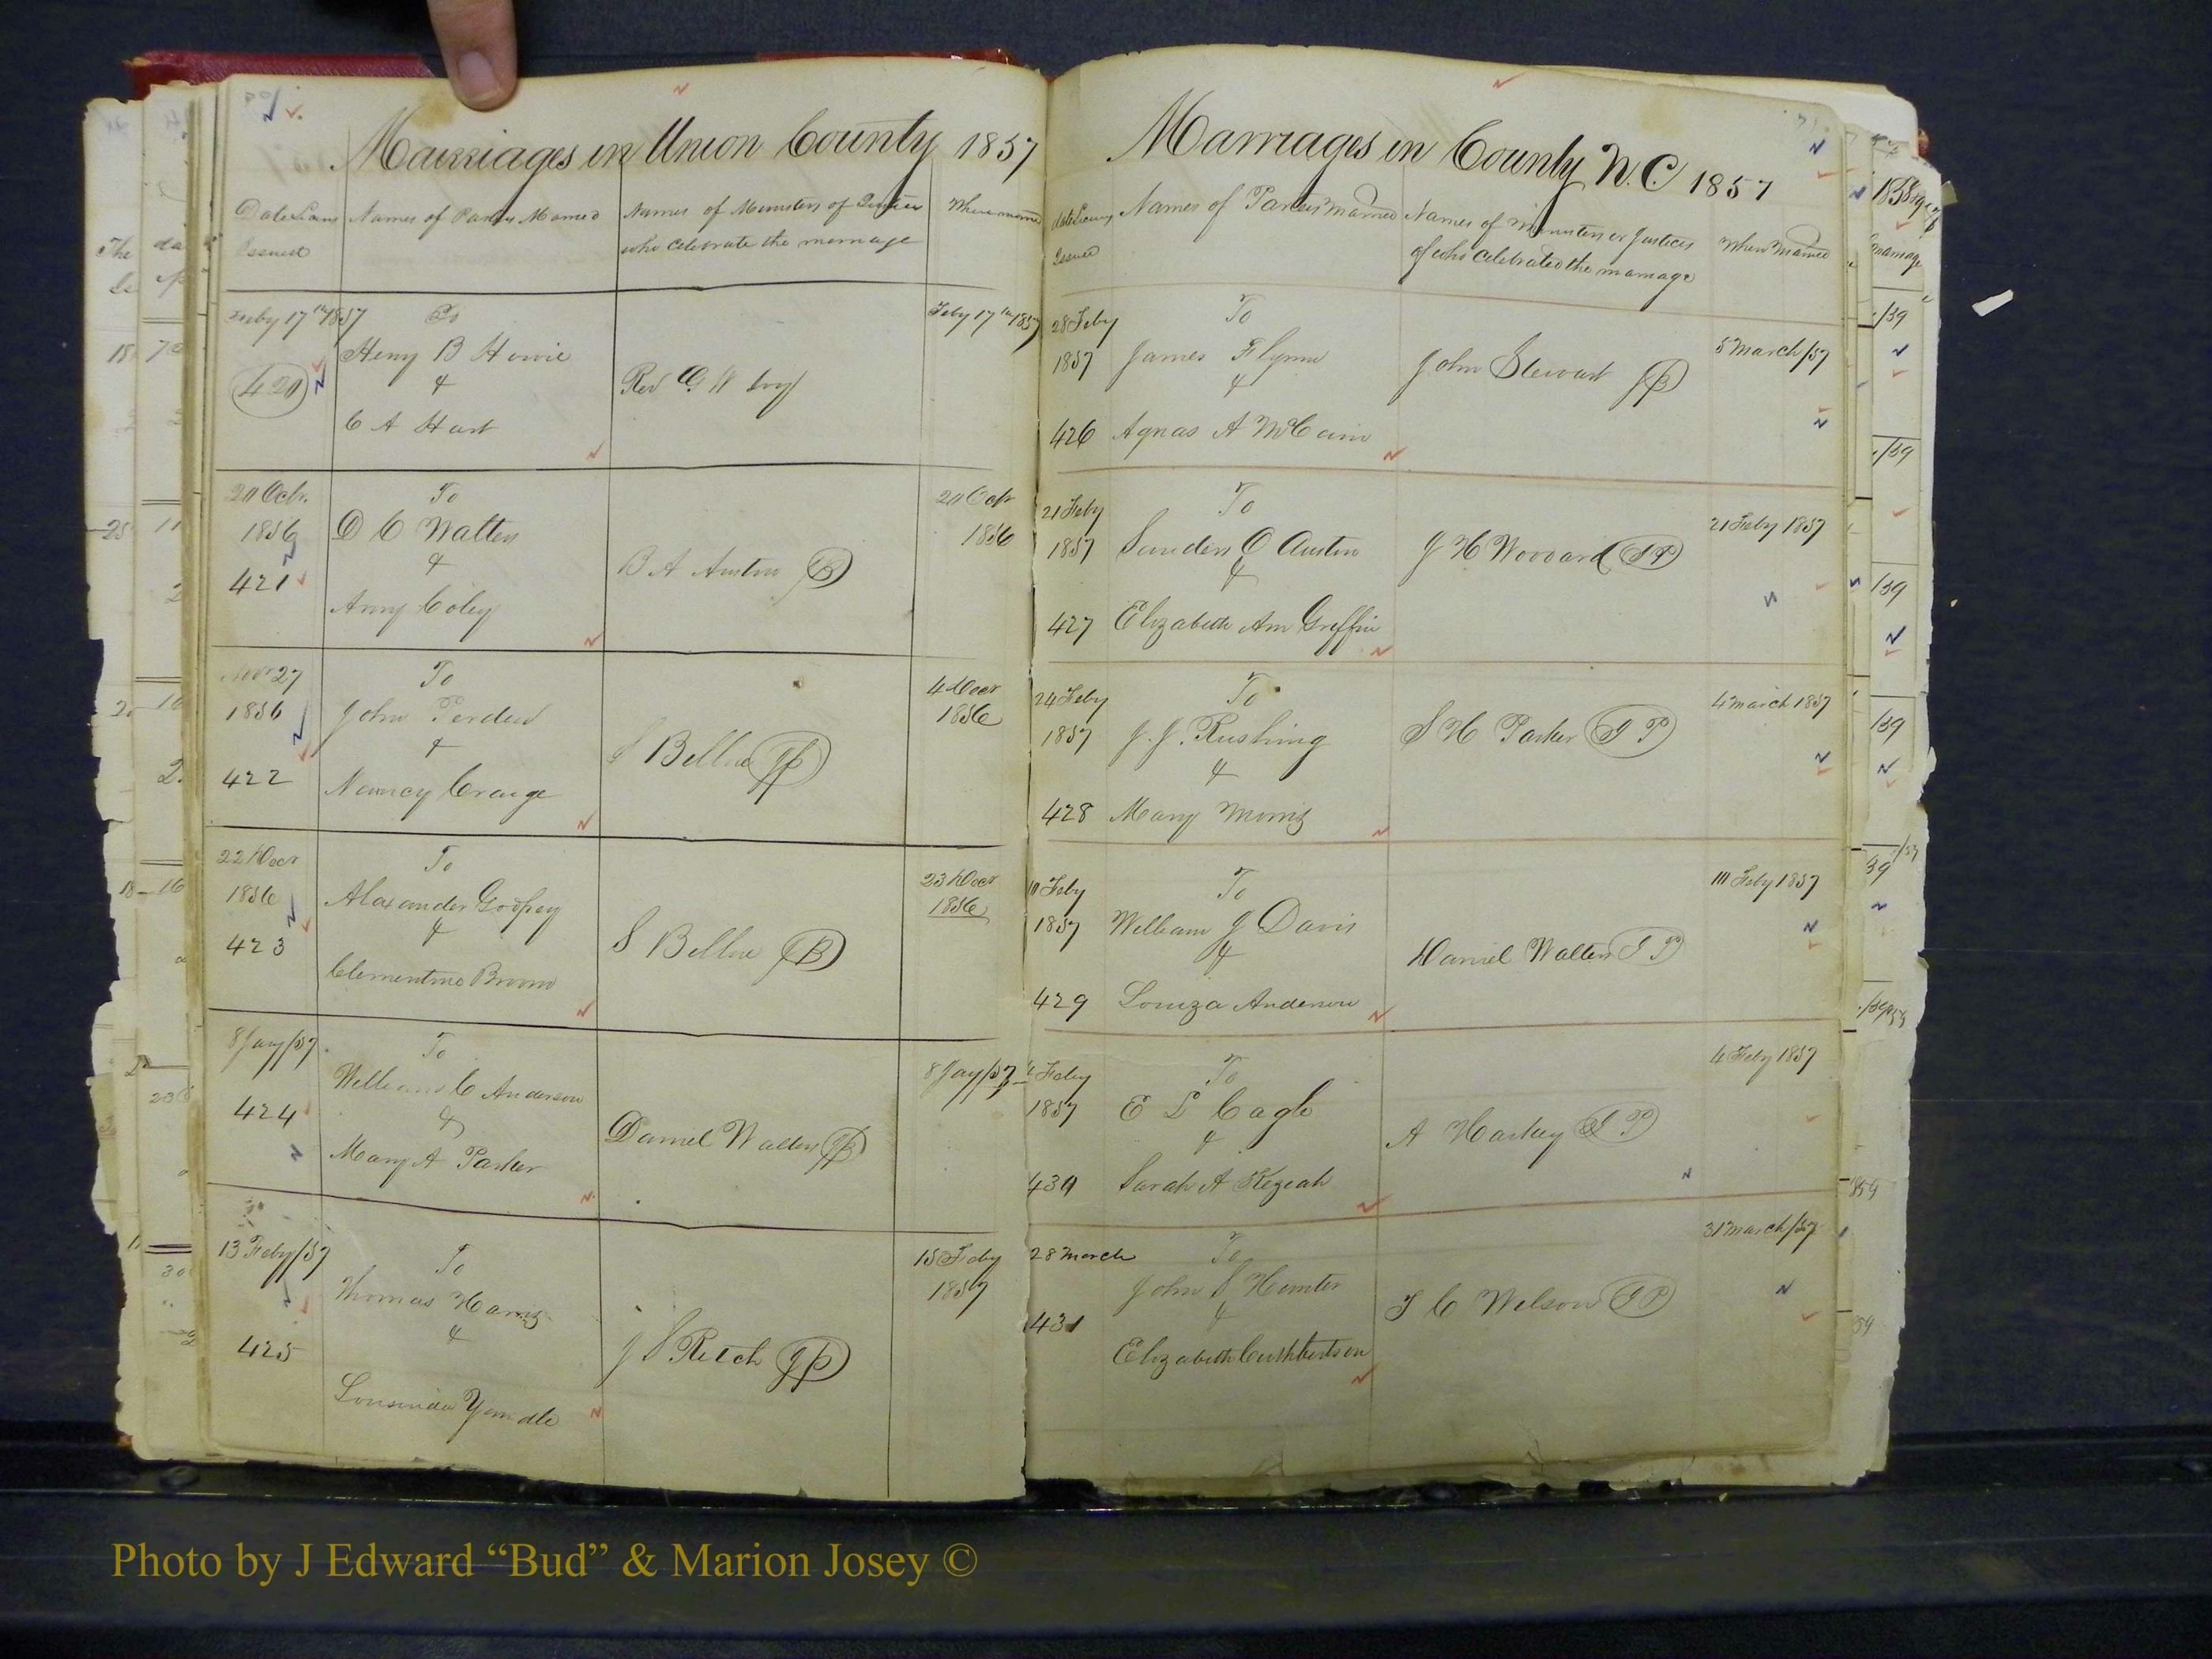 Marriages in Union County 1857
Date Licens Names of Parties Married Names of Ministers of Justices When married
Issued who celebrate the marriage
Feby 17th 1857 To Feby 17th 1857
Heny B Howie
420 & Rev G W Ivy
C A Hart
20 Octr. To 20 Octr
1856 D C Walters 1856
421 & B A Austin JP
Amy Coley
Novr 27 To 4 Decr
1856 John Perdew 1856
& S Bellue JP
422 Nancy Craige
22 Decr To 23 Decr
1856 Alaxander Godfrey 1856
423 & S Bellue JP
Clementine Broom
8 Jany/57. To 8 Jany/57
William C Anderson
424 & Daniel Walters JP
Mary A Parker
13 Feby/57 To 15 Feby
Thomas Harris 1857
& J S Reich JP
425
Yandle
Marriages in County N.C 1857
date Licens Names of Parties Married Names of Ministers or Justices When Married
Issued of who celebrated the marriage
28 Feby To 5 March/57
1857 James Flynn John Stewart JP
&
426 Agnas A McCain
21 Feby To 21 Feby 1857
1857 C Austin J H Woodard JP
&
427 Elizabeth Ann Griffin
24 Feby To 4 March 1857
1857 J. J. Rushing S H Parker JP
&
428 Mary Morris
10 Feby To 10 Feby 1857
1857 William J Davis
& Daniel Walters JP
429 Louiza Anderson
4 Feby To 4 Feby 1857
1857 E L Cagle
& A Harkey JP
430 Sarah A Keziah
28 March To 31 March/57
John S Hunter
431 & T C Wilson JP
Elizabeth Cuthbertson
Photo by J Edward “Bud” & Marion Josey ©